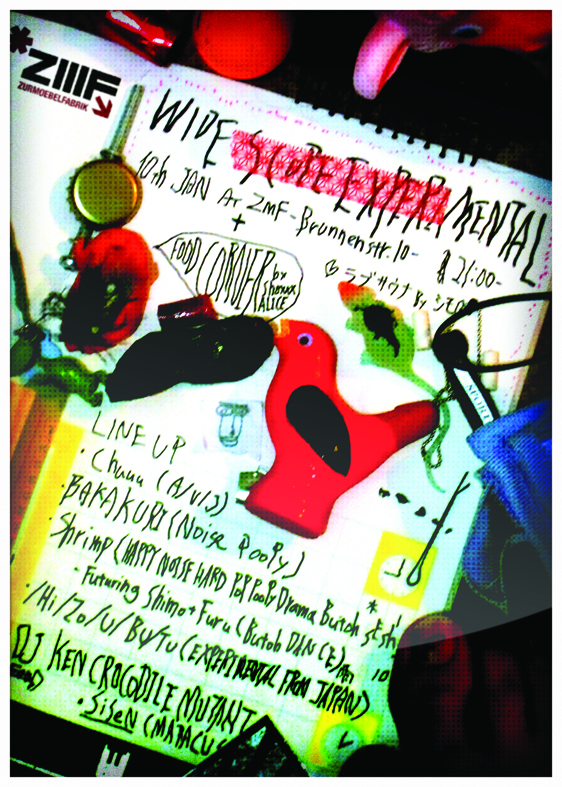 *ZMF
ZURMOEBELFABRIK
WIDE SCOPE EXPERIMENTAL
10th JAN At ZMF-Brunnenstr.10-
21:00-
+
FOOD CORNER by
ALICE
ラブサウナ By シモ
SPORT
LINE UP
・Chuuu (A/V/J)
・BAKAKURI (Noise PooPy)
・Shrimp (HAPPY NOISE HARD POP PooPy Drama Butoh
- Futuring Shimo + Furu (Butoh DANCE)
・/Hi/Zo/U/Bu/Tu (EXPERIMENTAL FROM JAPAN)
10
DJ KEN CROCODILE MUTANT
・SiSeN (MARACUS